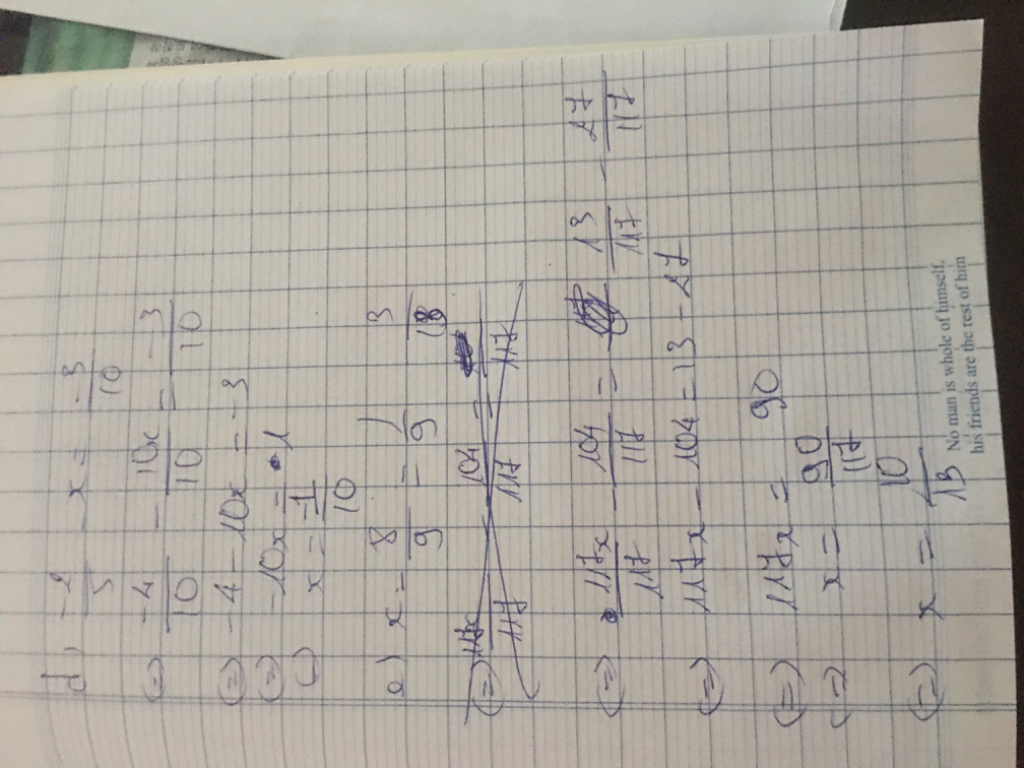 d, -2/5 - x = -3/10
(=) -4/10 - 10x/10 = -3/10
(=) -4 - 10x = -3
(=) -10x = 1
(-) x = -1/10
e) x - 8/9 = 1/9 - 3/13
(=) 117x/117 - 104/117 = 13/117 - 27/117
(=) 117x - 104 = 13 - 27
(=) 117x = 90
(=) x = 90/117
(=) x = 10/13
No man is whole of himself,
his friends are the rest of him